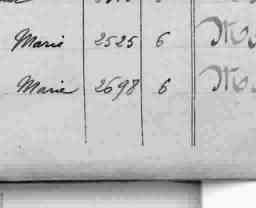 Marie 2525 6
Marie 2698 6